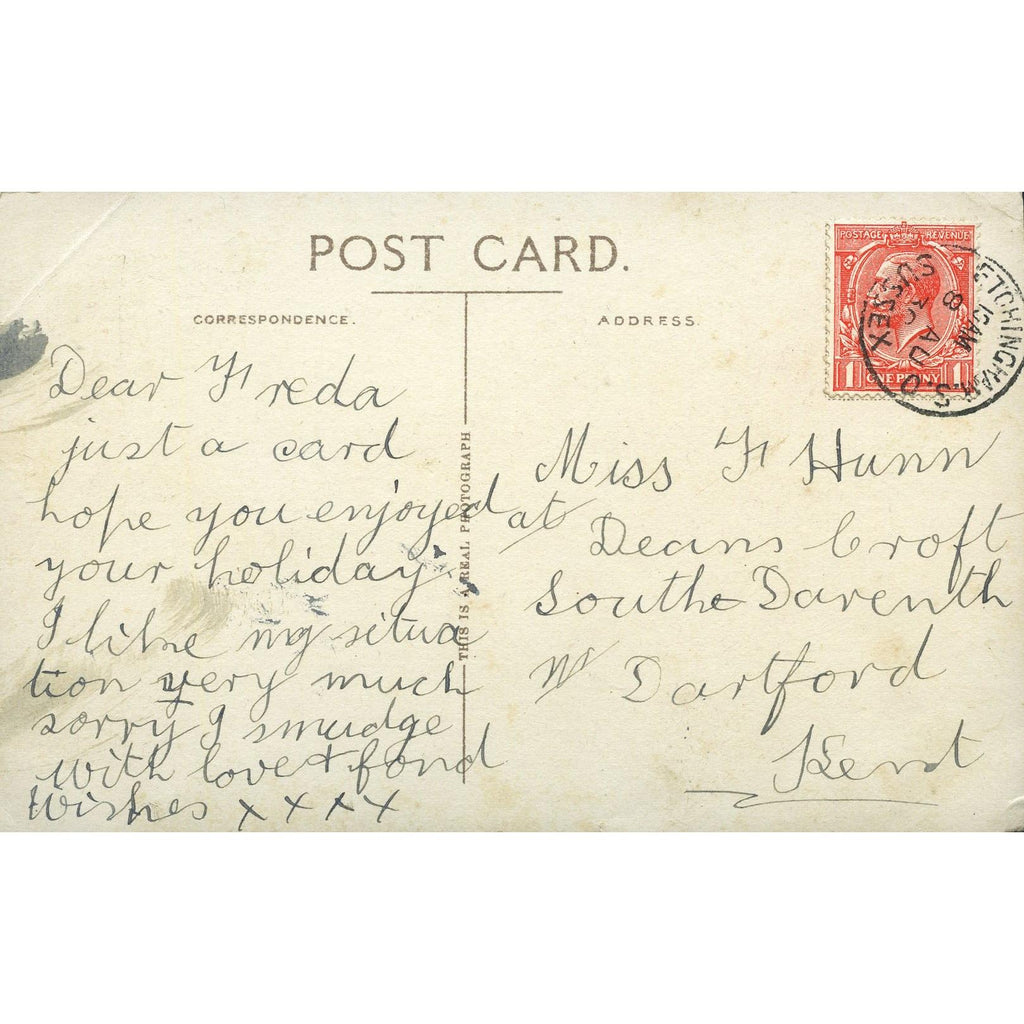 POST CARD.
CORRESPONDENCE.
ADDRESS.
POSTAGE REVENUE
1 ONE PENNY 1
ETCHINGHAM.S.O
8 15AM
30 AU
SUSSEX
THIS IS A REAL PHOTOGRAPH
Dear Freda
just a card
hope you enjoyed
your holiday.
I like my situa
tion very much
sorry I smudge
with love & fond
wishes x x x x
Miss F Hunn
at Deans Croft
South Darenth
Nr Dartford
Kent